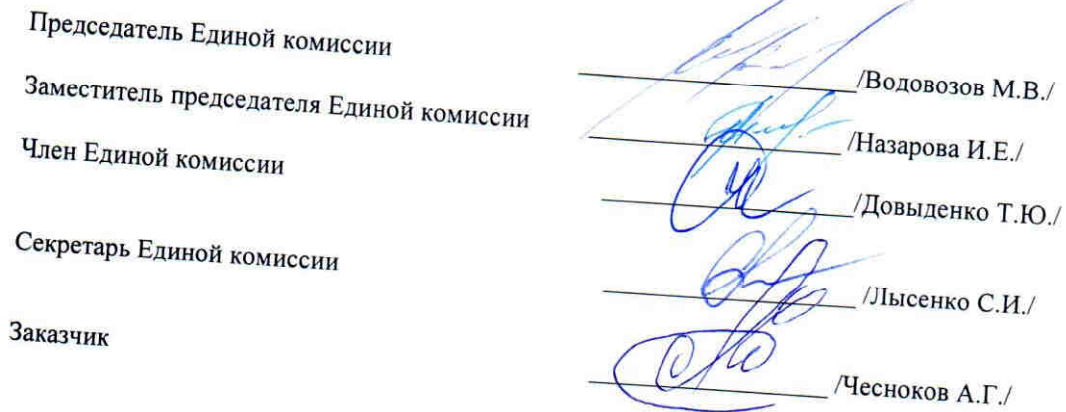 Председатель Единой комиссии /Водовозов М.В./
Заместитель председателя Единой комиссии /Назарова И.Е./
Член Единой комиссии /Довыденко Т.Ю./
Секретарь Единой комиссии /Лысенко С.И./
Заказчик /Чесноков А.Г./